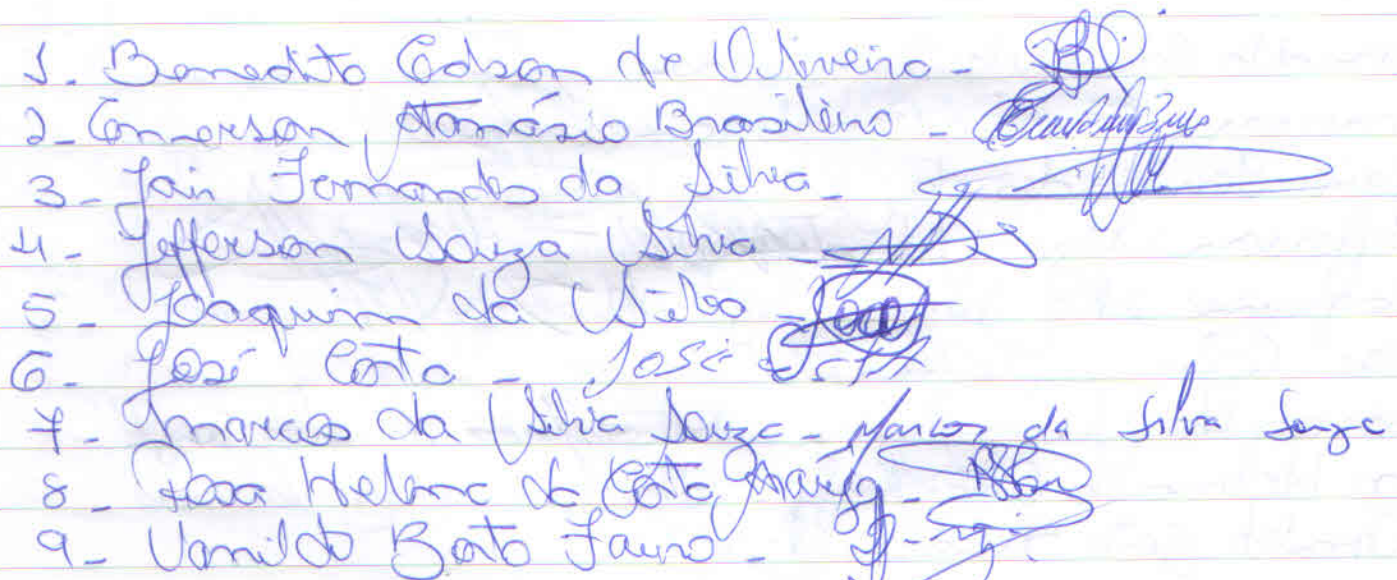 1- Benedito Edson de Oliveira -
2- Emerson Atanásio Brasileiro -
3- Jair Fernandes da Silva -
4- Jefferson Souza Silva -
5- Joaquim da Silva -
6- José Costa - José Costa
7- Marcos da Silva Souza - Marcos da Silva Souza
8- Rosa Helena da Costa Araújo -
9- Vanildo Bento Fauro -